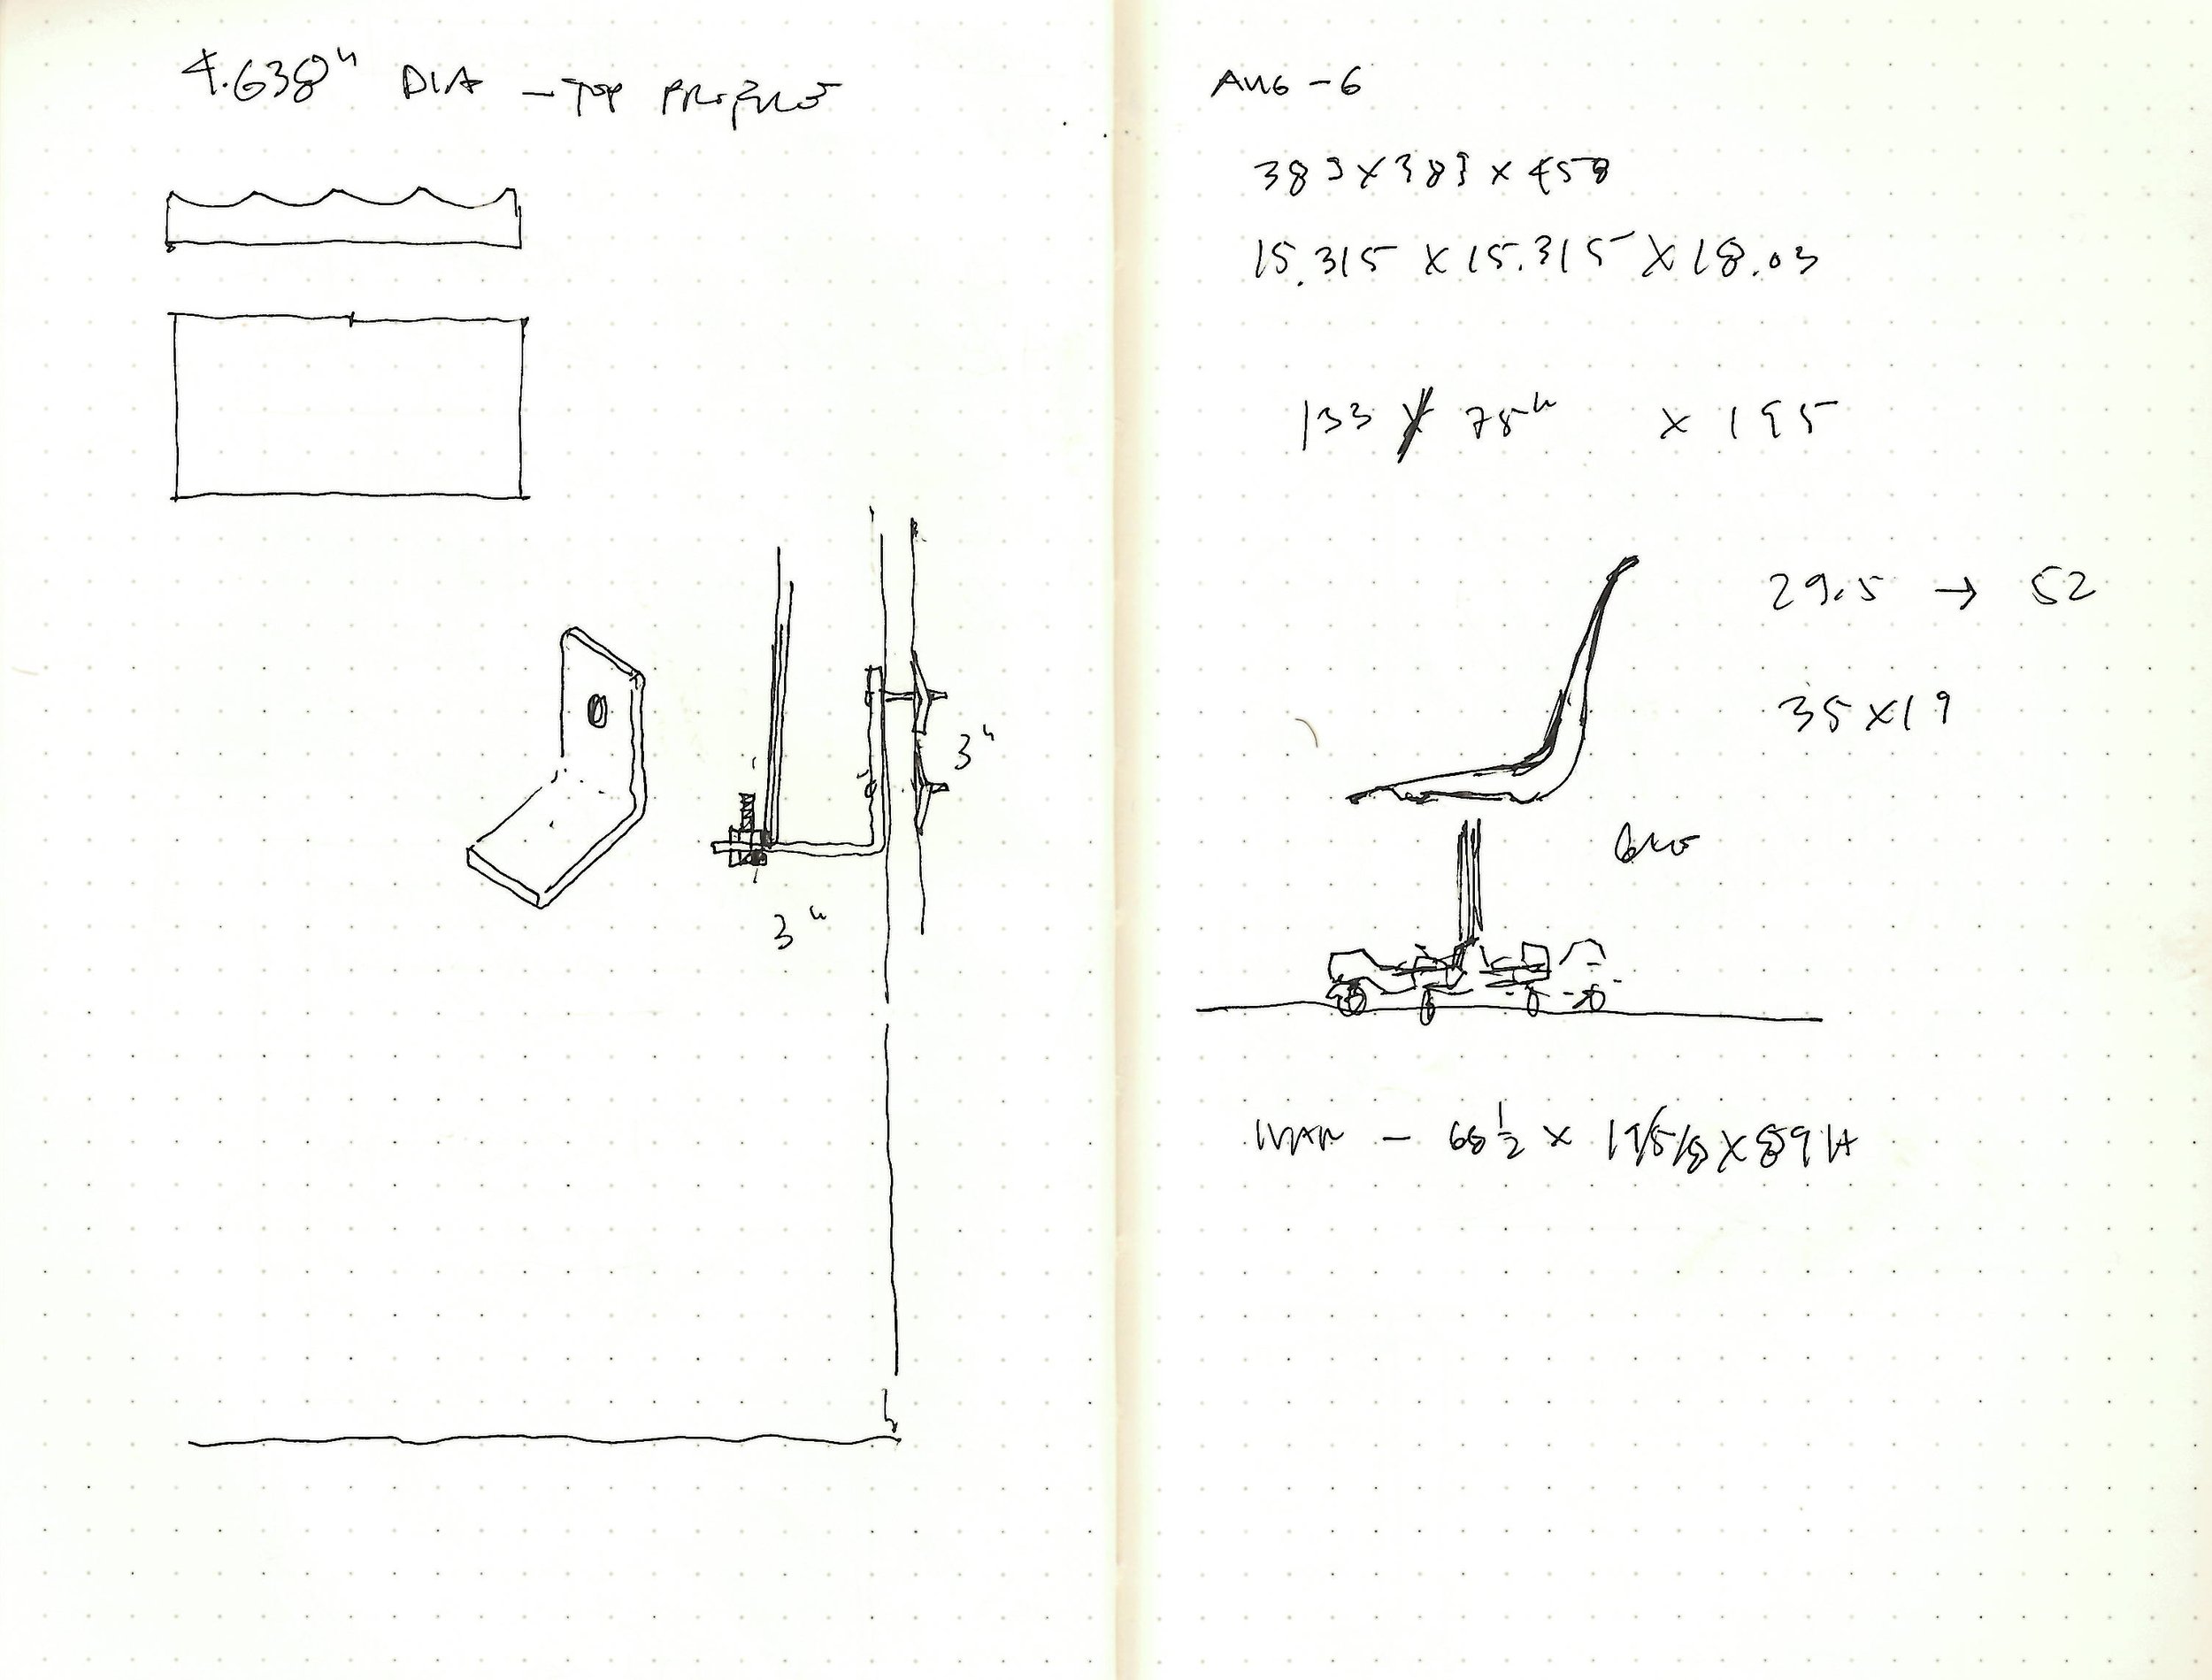 4.638" DIA - TOP PROFILE
3"
3"
AUG - 6
383 x 383 x 458
15.315 x 15.315 x 18.03
133 x 78" x 195
29.5 → 52
35 x 19
- 68 1/2 x 19 5/8 x 89 H